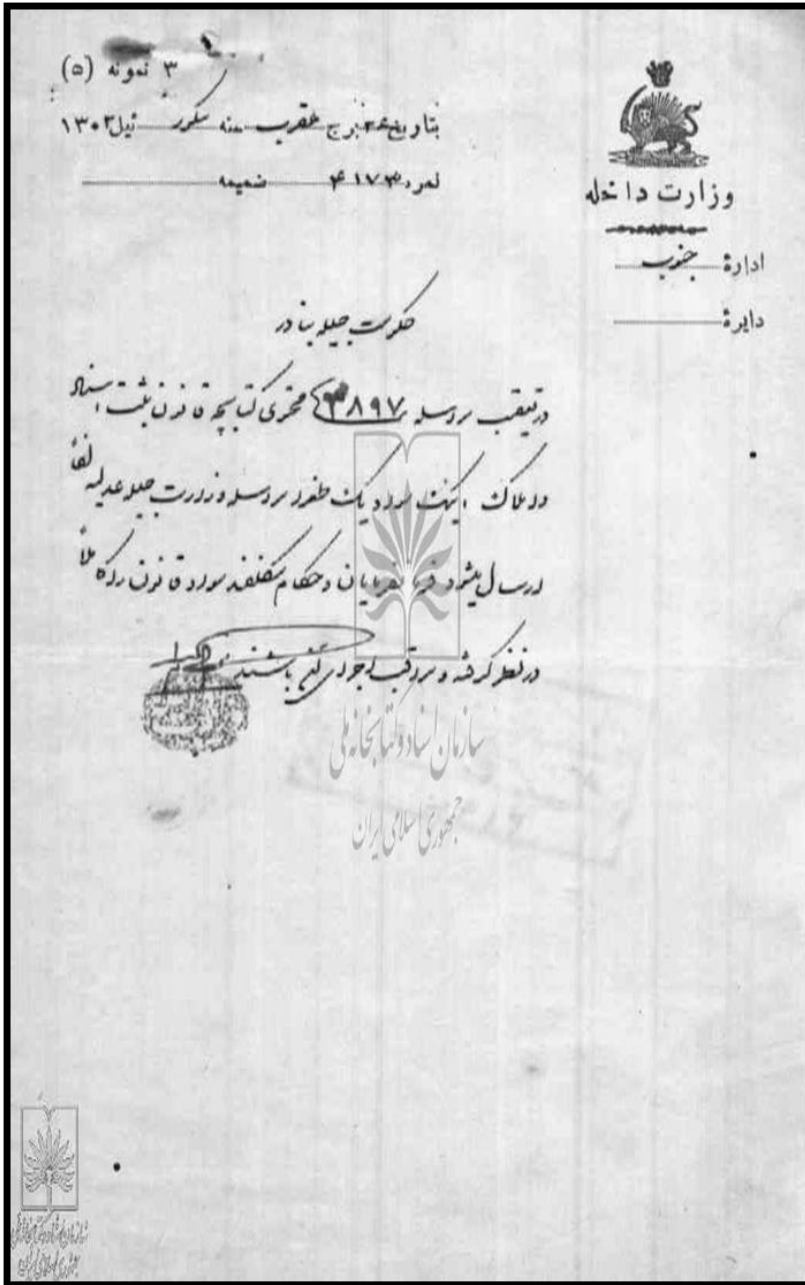 ۳ نمونه (۵)
بتاریخ ۲۶ برج عقرب سنه تنگوز ئیل ۱۳۰۲
نمره ۴۱۷۳ ضمیمه
وزارت داخله
اداره جنوب
دایرهٔ
حکومت جلیله بنادر
در تعقیب مرسله ۳۸۹۷ محتوی کتابچه قانون ثبت اسناد
و املاک اینک سواد یک طغرا مرسله وزارت جلیله عدلیه لفاً
ارسال میشود فرمانفرمایان و حکام مکلفند مواد قانون را کاملاً
در نظر گرفته و مراقب اجرای آن باشند
سازمان اسناد و کتابخانه ملی
جمهوری اسلامی ایران